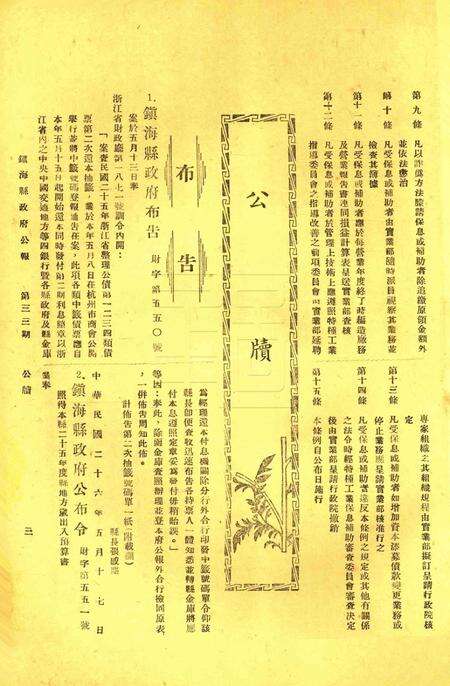 第九條 凡以詐偽方法矇請保息或補助者除追繳原領金額外
並依法懲治
第十條 凡受保息或補助者由實業部隨時派員視察其業務並
檢查其簿據
第十一條 凡受保息或補助者應於每營業年度終了時編造廠務
及營業報告書連同損益計算表呈送實業部查核
第十二條 凡受保息或補助者於管理上技術上應遵照特種工業
指導委員會之指導改善之前項委員會由實業部延聘
專家組織之其組織規程由實業部擬訂呈請行政院核
定
第十三條 凡受保息或補助者如增加資本添募債款變更業務或
停止業務應呈請實業部核准行之
第十四條 凡受保息或補助者違反本條例之規定或其他有關係
之法令時經特種工業保息補助審查委員會審查決定
後由實業部呈請行政院撤銷
第十五條 本條例自公布日施行
公牘
布告
1.鎮海縣政府布告 財字第五五〇號
案於五月十三日奉
浙江省財政廳第一八七一號訓令內開：
「案查民國二十五年浙江省整理公債第一二三四類債
票第二次還本抽籤，業於本年五月八日在杭州市商會公開
舉行並將中籤號碼登報通告在案，此項各類中籤債票應自
本年五月十五日起開始還本同時發付第二期利息歸章以浙
江省內之中央中國交通地方等四銀行暨各縣政府及縣金庫
為經理還本付息機關除分行外合行印發中籤號碼單令仰該
縣長即便查收迅速布告各持票人一體知悉並轉縣金庫將應
付本息遵照定章妥為發付毋稍貽誤。」
等因：奉此，除函金庫查照辦理並登本府公報外合行檢同原表
，一併佈告周知此佈。
計佈告第二次抽籤號碼單一紙（附載欄）
縣長張感塵
中華民國二十六年五月十七日
2.鎮海縣政府公布令 財字第五五一號
照得本縣二十五年度縣地方歲出入預算書
業奉
鎮海縣政府公報 第三三期 公牘 三